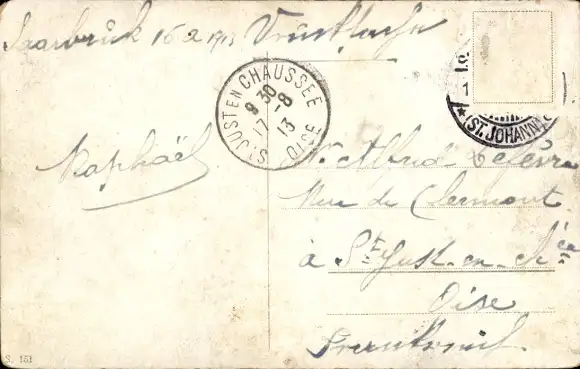 Saarbrück 16 a 1913
ST JUST EN CHAUSSEE
9 30
17 - 8
13
OISE
(ST. JOHANN)
Raphaël
Mr Alfred Lefèvre
Rue de Clermont
à St Just-en-Chée
Oise
Frankreich
S. 151